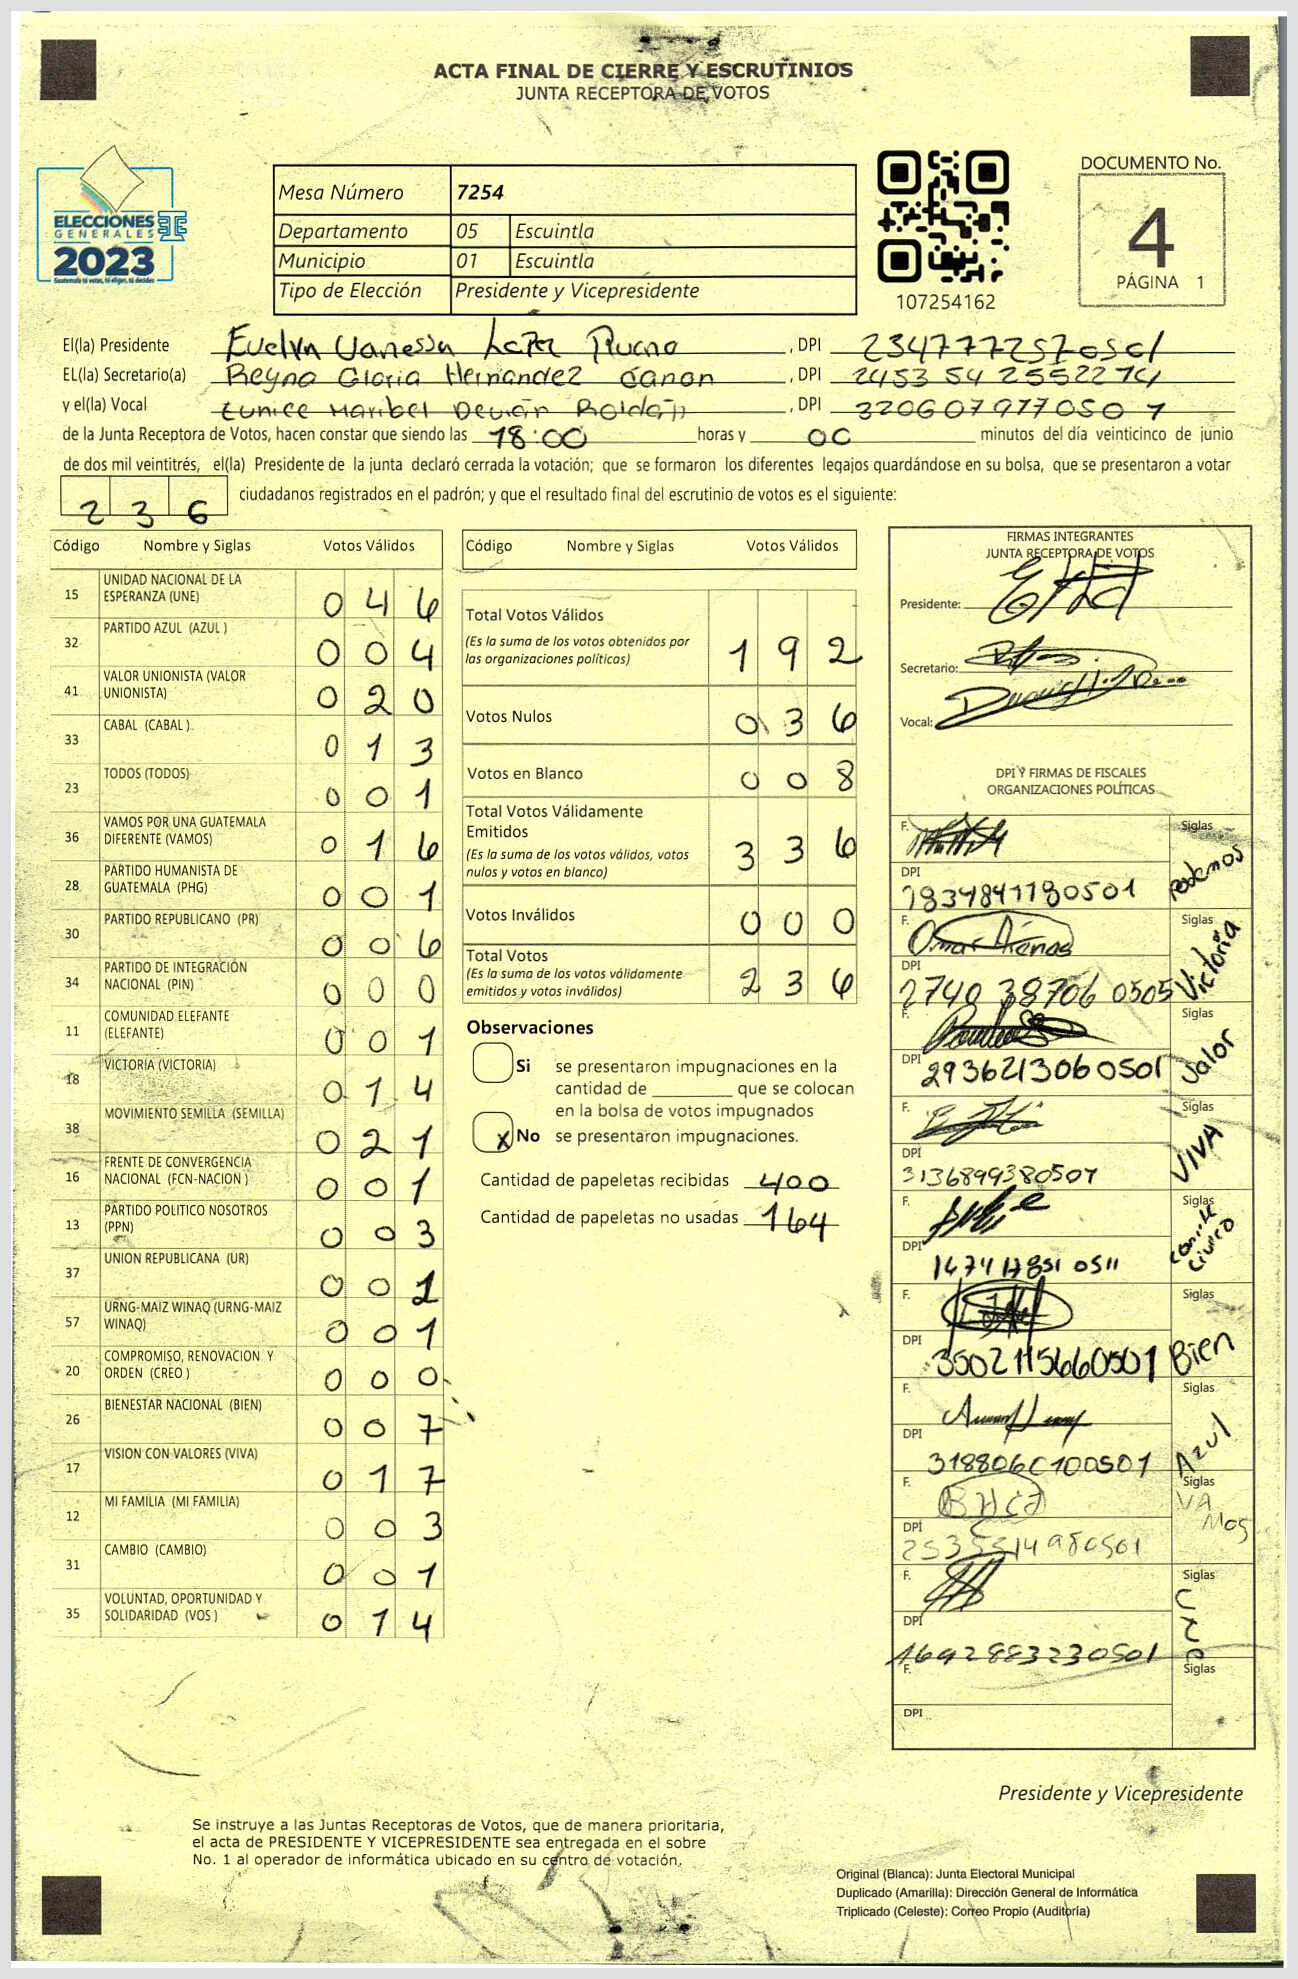 ACTA FINAL DE CIERRE Y ESCRUTINIOS
JUNTA RECEPTORA DE VOTOS
ELECCIONES
GENERALES
2023
Guatemala tú votas, tú eliges, tú decides
Mesa Número 7254
Departamento 05 Escuintla
Municipio 01 Escuintla
Tipo de Elección Presidente y Vicepresidente
107254162
DOCUMENTO No.
4
PÁGINA 1
El(la) Presidente Evelyn Vanessa , DPI
EL(la) Secretario(a) Reyna Gloria Hernandez , DPI 2453 54 255
y el(la) Vocal Eunice Maribel Roldán , DPI 320607977050 1
de la Junta Receptora de Votos, hacen constar que siendo las 18:00 horas y 00 minutos del día veinticinco de junio
de dos mil veintitrés, el(la) Presidente de la junta declaró cerrada la votación; que se formaron los diferentes legajos guardándose en su bolsa, que se presentaron a votar
236 ciudadanos registrados en el padrón; y que el resultado final del escrutinio de votos es el siguiente:
Código Nombre y Siglas Votos Válidos
15 UNIDAD NACIONAL DE LA ESPERANZA (UNE) 0 4 6
32 PARTIDO AZUL (AZUL ) 0 0 4
41 VALOR UNIONISTA (VALOR UNIONISTA) 0 2 0
33 CABAL (CABAL ) 0 1 3
23 TODOS (TODOS) 0 0 1
36 VAMOS POR UNA GUATEMALA DIFERENTE (VAMOS) 0 1 6
28 PARTIDO HUMANISTA DE GUATEMALA (PHG) 0 0 1
30 PARTIDO REPUBLICANO (PR) 0 0 6
34 PARTIDO DE INTEGRACIÓN NACIONAL (PIN) 0 0 0
11 COMUNIDAD ELEFANTE (ELEFANTE) 0 0 1
18 VICTORIA (VICTORIA) 0 1 4
38 MOVIMIENTO SEMILLA (SEMILLA) 0 2 1
16 FRENTE DE CONVERGENCIA NACIONAL (FCN-NACION ) 0 0 1
13 PARTIDO POLITICO NOSOTROS (PPN) 0 0 3
37 UNION REPUBLICANA (UR) 0 0 1
57 URNG-MAIZ WINAQ (URNG-MAIZ WINAQ) 0 0 1
20 COMPROMISO, RENOVACION Y ORDEN (CREO ) 0 0 0
26 BIENESTAR NACIONAL (BIEN) 0 0 7
17 VISION CON VALORES (VIVA) 0 1 7
12 MI FAMILIA (MI FAMILIA) 0 0 3
31 CAMBIO (CAMBIO) 0 0 1
35 VOLUNTAD, OPORTUNIDAD Y SOLIDARIDAD (VOS ) 0 1 4
Código Nombre y Siglas Votos Válidos
Total Votos Válidos
(Es la suma de los votos obtenidos por
las organizaciones políticas) 1 9 2
Votos Nulos 0 3 6
Votos en Blanco 0 0 8
Total Votos Válidamente
Emitidos
(Es la suma de los votos válidos, votos
nulos y votos en blanco) 3 3 6
Votos Inválidos 0 0 0
Total Votos
(Es la suma de los votos válidamente
emitidos y votos inválidos) 2 3 6
Observaciones
Si se presentaron impugnaciones en la
cantidad de ________ que se colocan
en la bolsa de votos impugnados
x No se presentaron impugnaciones.
Cantidad de papeletas recibidas 400
Cantidad de papeletas no usadas 164
FIRMAS INTEGRANTES
JUNTA RECEPTORA DE VOTOS
Presidente:
Secretario:
Vocal:
DPI Y FIRMAS DE FISCALES
ORGANIZACIONES POLÍTICAS
F. Siglas Podemos
DPI
F. Omar Siglas Victoria
DPI 2740 38706 0505
F. Siglas Valor
DPI 2936213060501
F. Siglas VIVA
DPI 3136899380507
F. Siglas comite civico
DPI
F. Siglas Bien
DPI 3502115660501
F. Siglas Azul
DPI 3188060100501
F. Siglas VAMOS
DPI
F. Siglas UNE
DPI 1692883230501
F. Siglas
DPI
Presidente y Vicepresidente
Se instruye a las Juntas Receptoras de Votos, que de manera prioritaria,
el acta de PRESIDENTE Y VICEPRESIDENTE sea entregada en el sobre
No. 1 al operador de informática ubicado en su centro de votación.
Original (Blanca): Junta Electoral Municipal
Duplicado (Amarilla): Dirección General de Informática
Triplicado (Celeste): Correo Propio (Auditoría)